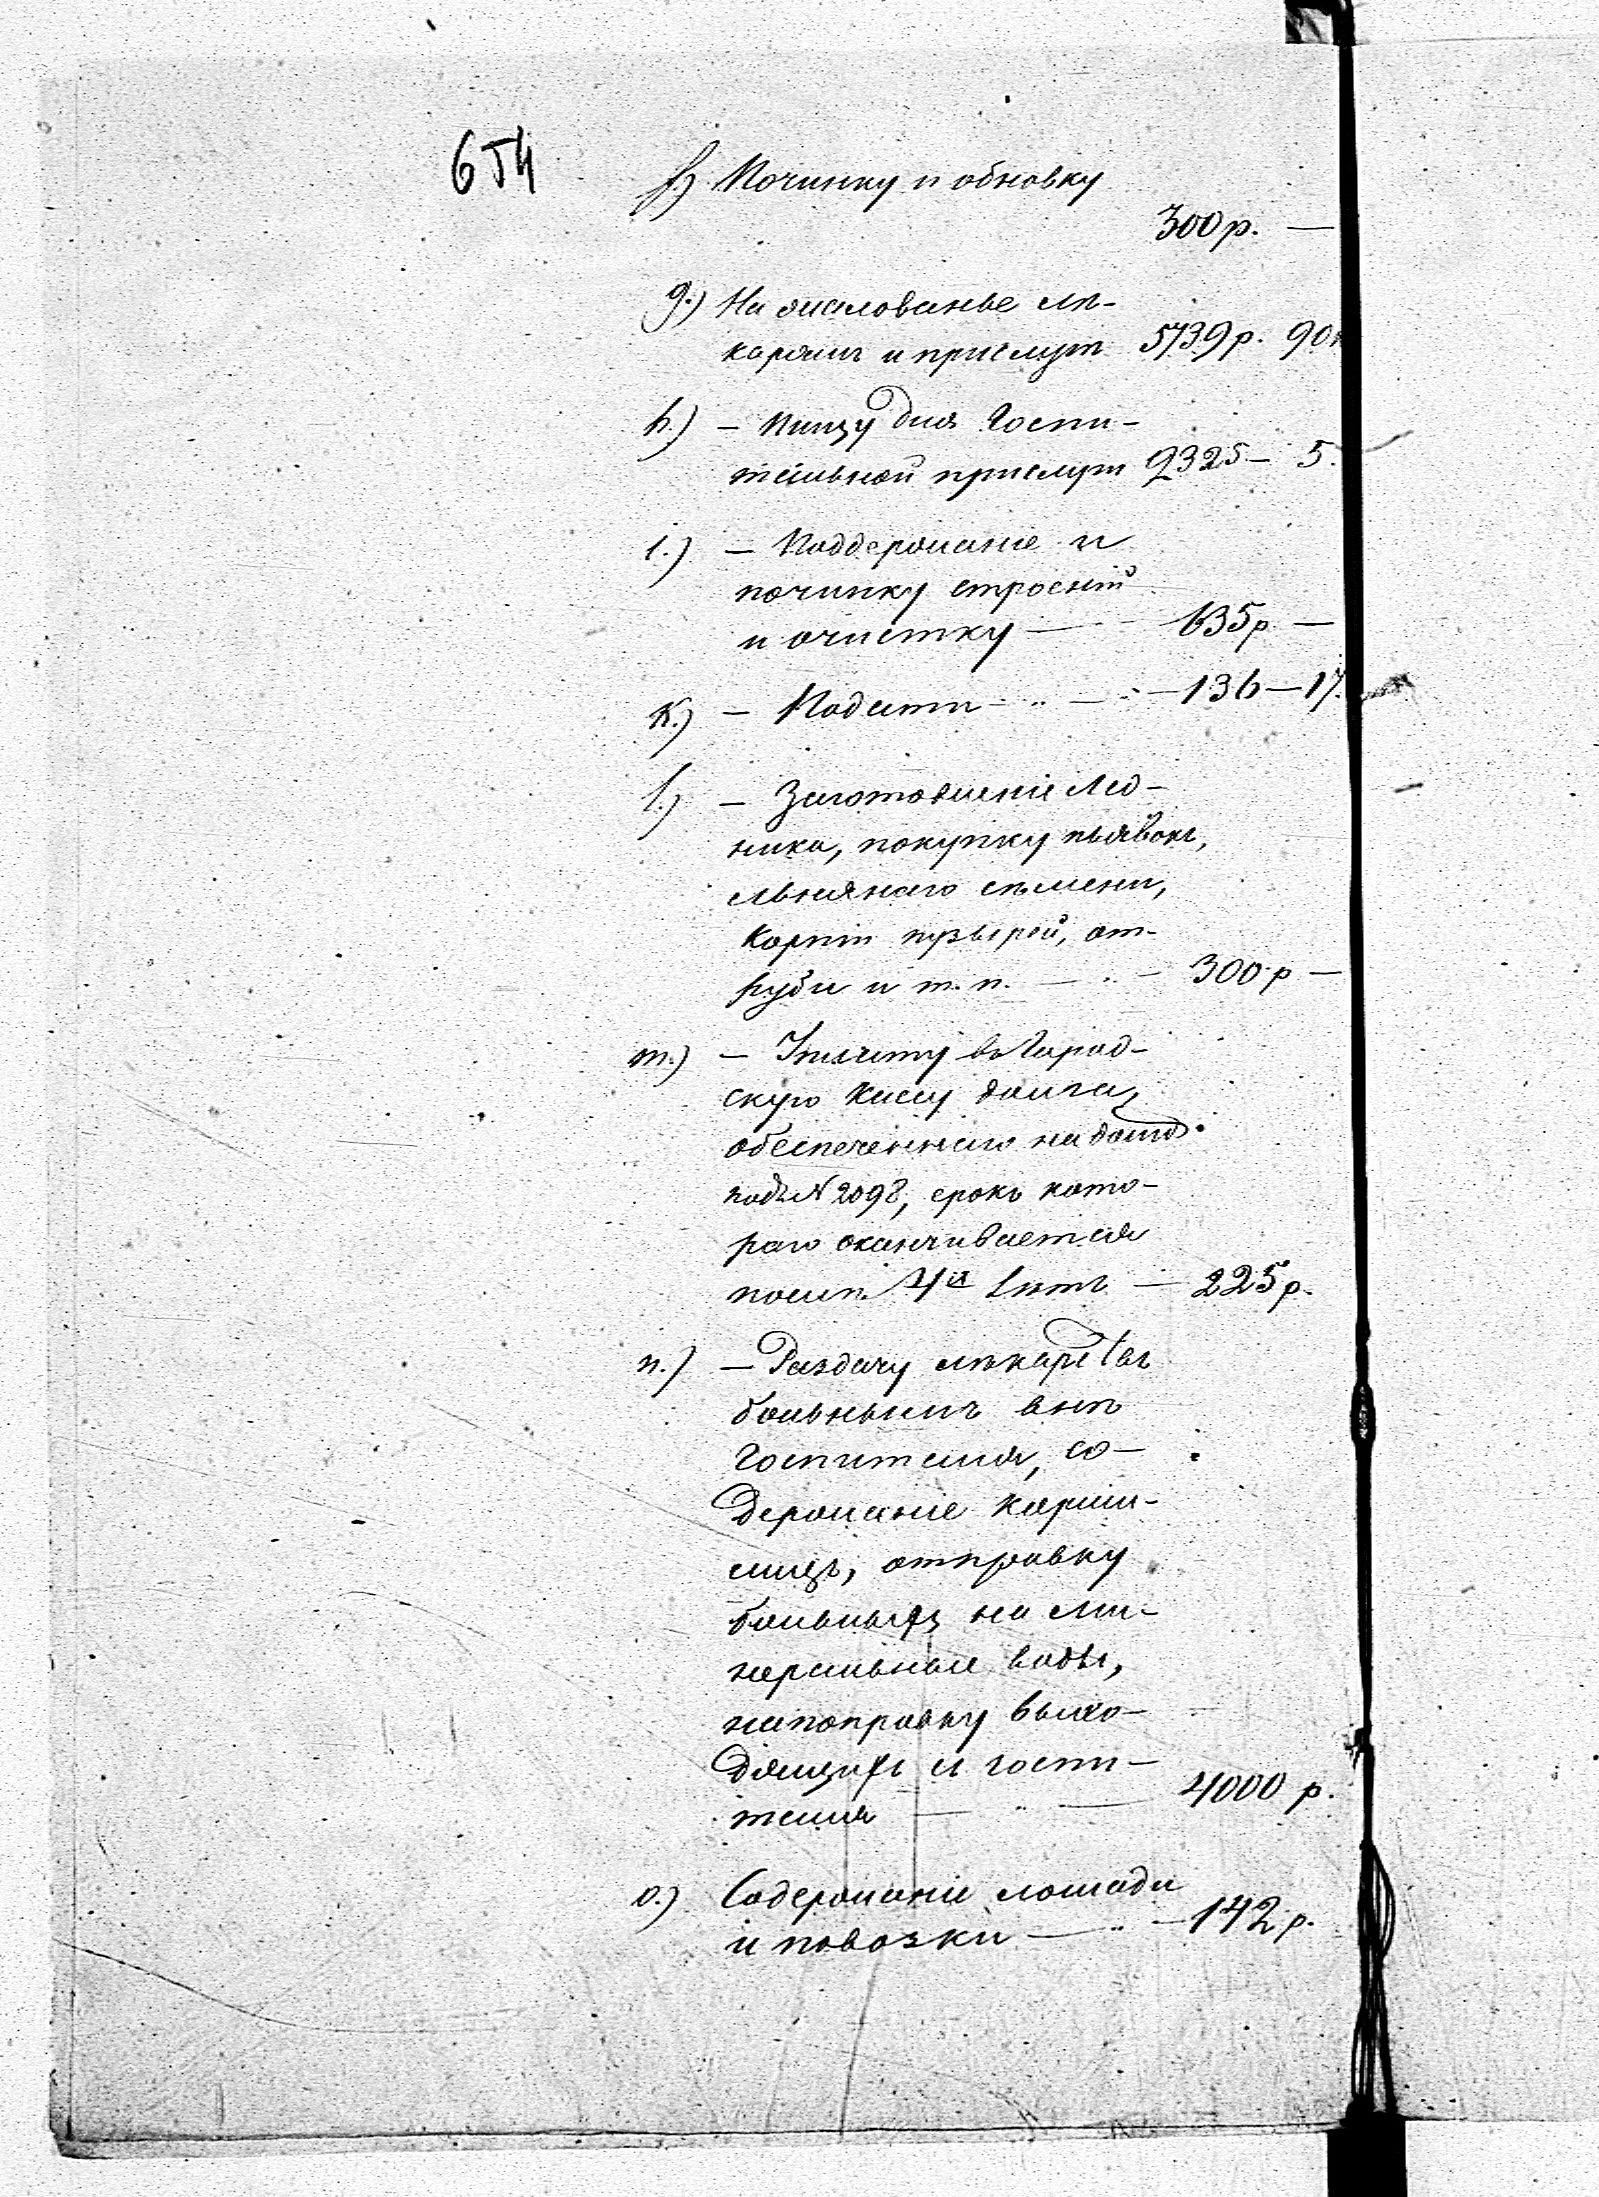 654
f.) Починку и обновку
300 р. —
g.) На жалованье лѣ-
карямъ и прислугѣ 5739 р. 90
h.) — Пищу для Госпи-
тальной прислуги 2325 — 5.
i.) — Поддержаніе и
починку строеній
и очистку — 635 р. —
K.) — Подати — " — 136 — 17.
l.) — Заготовленіе лед-
ника, покупку пьявокъ,
льнянаго сѣмени,
корпіи пузырей, от-
руби и т. п. — " — 300 р —
m.) — Уплату въ Город-
скую Кассу долга,
обеспеченнаго на домѣ
подъ N 2098, срокъ кото-
раго оканчивается
послѣ 4й лѣтъ — 225 р.
n.) — Раздачу лѣкарствъ
больнымъ внѣ
Госпиталя, со-
держаніе корми-
лицъ, отправку
больныхъ на ми-
неральные воды,
на поправку выхо-
дящихъ из госпи-
талля — " — 4000 р.
o.) Содержаніе лошади
и повозки — " — 142 р.